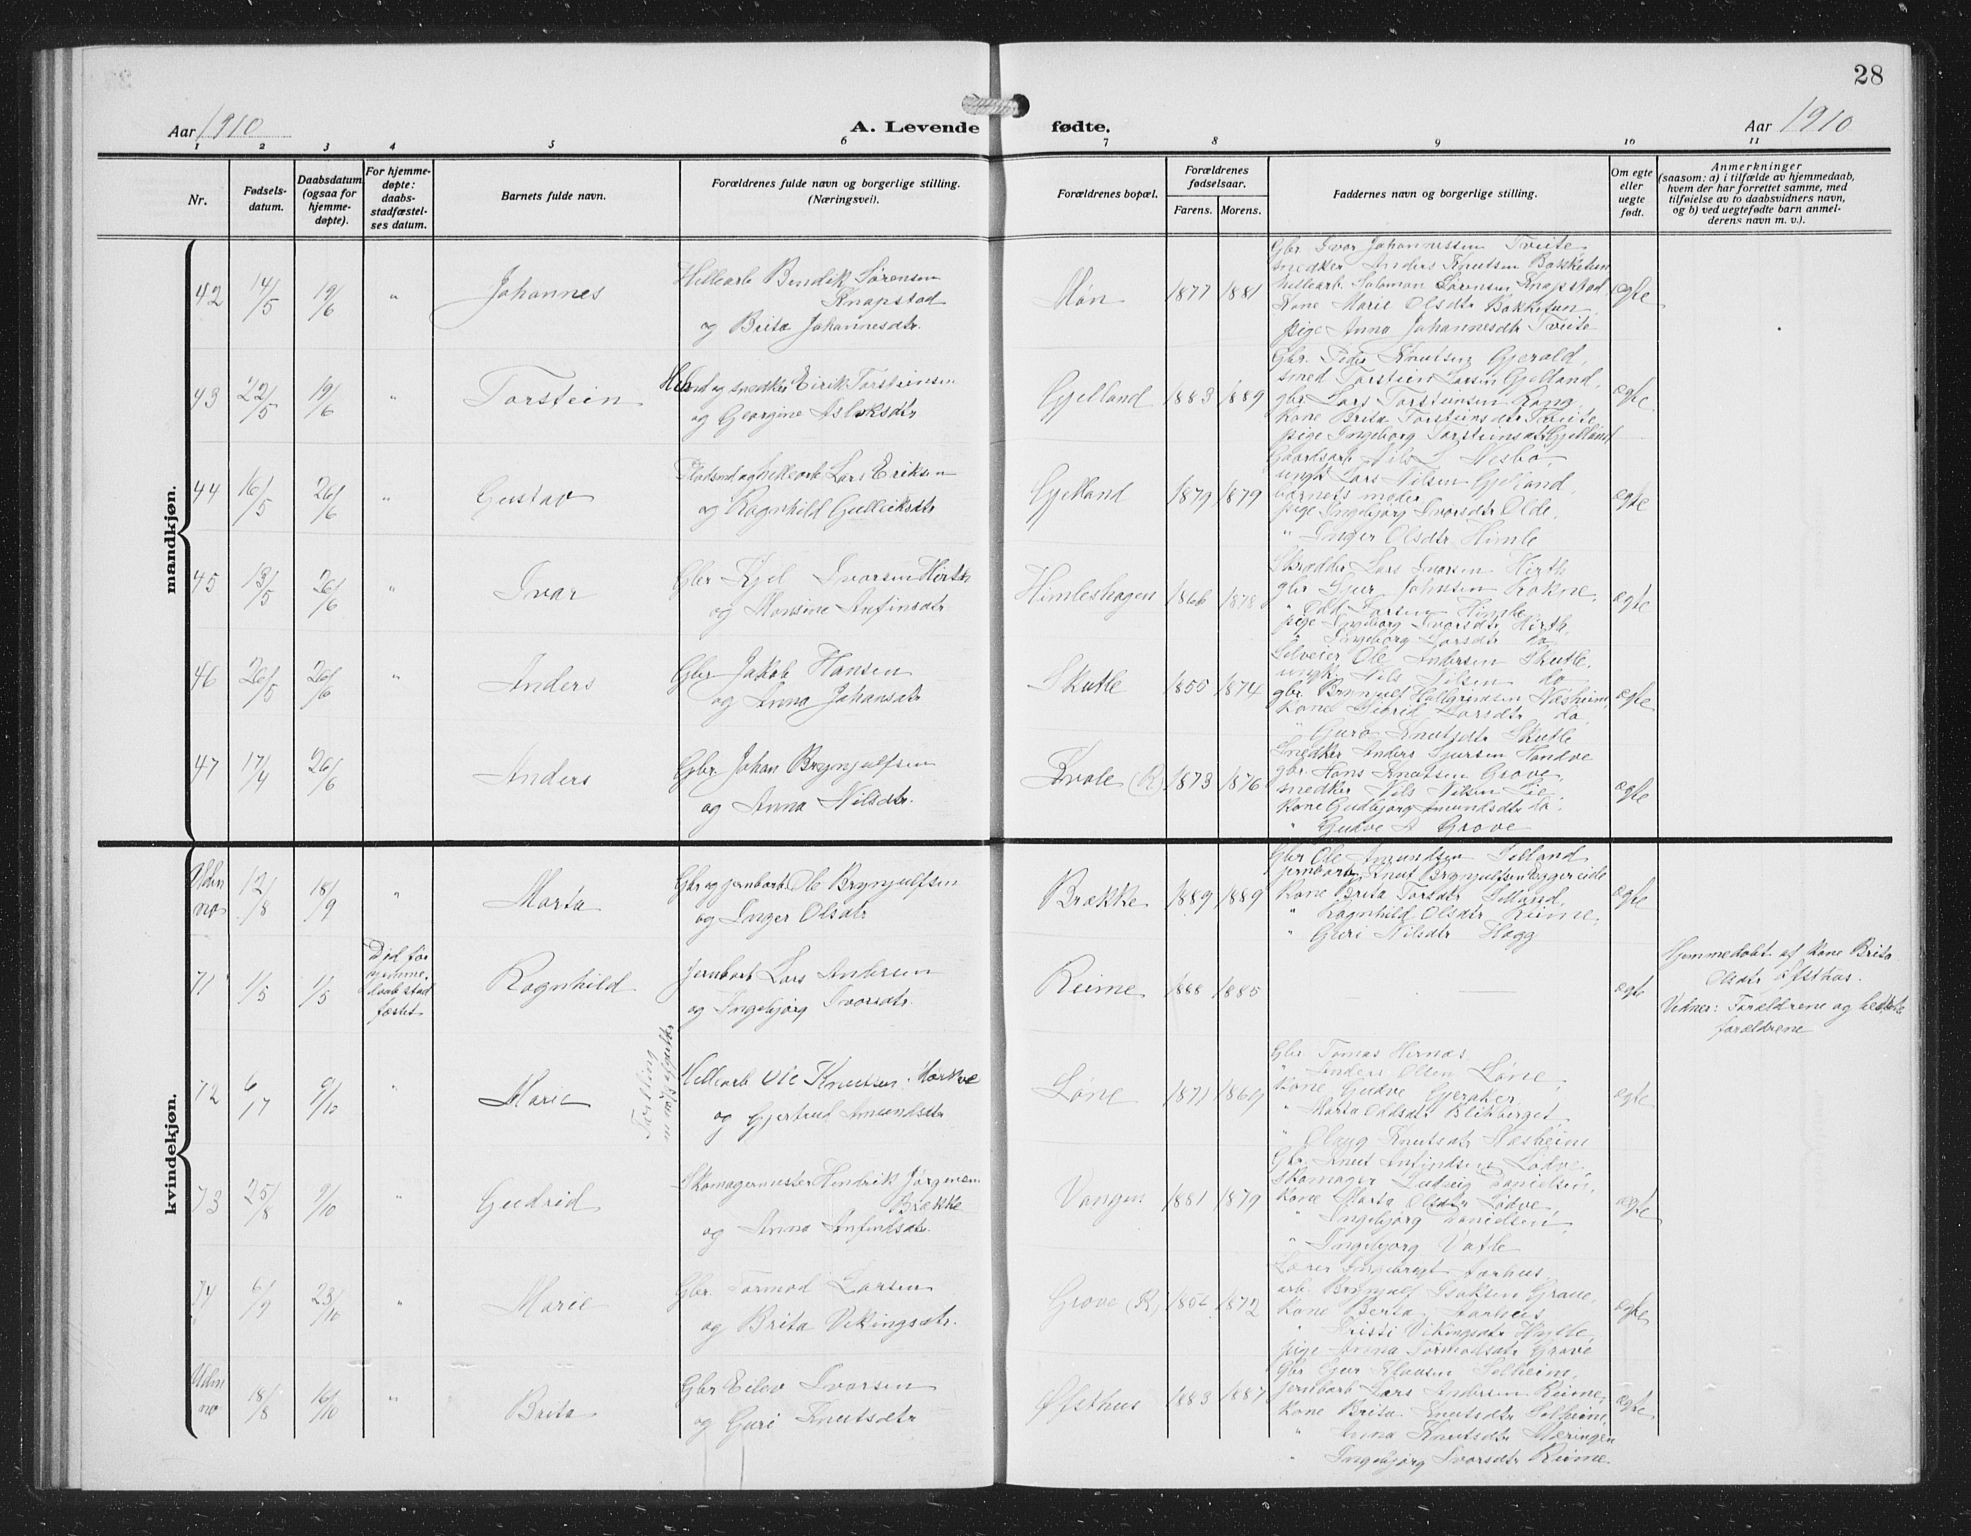 28
Aar 1910
A. Levende fødte.
Aar 1910
1 2 3 4 5 6 7 8 9 10 11
Nr.
Fødsels-
datum.
Daabsdatum
(ogsaa for
hjemme-
døpte).
For hjemme-
døpte:
daabs-
stadfæstel-
ses datum.
Barnets fulde navn.
Forældrenes fulde navn og borgerlige stilling.
(Næringsvei).
Forældrenes bopæl.
Forældrenes
fødselsaar.
Farens. Morens.
Faddernes navn og borgerlige stilling.
Om egte
eller
uegte
født.
Anmerkninger
(saasom: a) i tilfælde av hjemmedaab,
hvem der har forrettet samme, med
tilføielse av to daabsvidners navn,
og b) ved uegtefødte barn anmel-
derens navn m. v.).
mandkjøn.
42 14/5 19/6 " Johannes
Hellearb Bendik Sørensen
Knapstad
og Brita Johannesdtr.
Møn 1877 1881
Gbr Ivar Johannessen Tveite
snedker Anders Knutsen Bakketun
hellearb Salomon Sørensen Knapstad
Kone Marie Olsdtr Bakketun
pige Anna Johannesdtr Tveite
ægte
43 22/5 19/6 " Torstein
og snedker Eirik Torsteinsen
og Georgine Aslaksdtr
Gjelland 1883 1889
Gbr. Peder Knutsen Gjerald,
smed Torstein Larsen Gjelland,
gbr. Lars Torsteinsen Rong,
Kone Brita Torsteinsdtr Tveite
pige Ingeborg Torsteinsdtr Gjelland
ægte
44 16/5 26/6 " Gustav
Pladsmd og hellearb Lars Eriksen
og Ragnhild Gulleiksdtr
Gjelland 1879 1879
Gaardsarb Nils L Nesbø,
ungk Lars Nilsen Gjelland,
barnets moder
pige Ingebjørg Ivarsdtr Olde,
" Inger Olsdtr Himle
ægte
45 13/5 26/6 " Ivar
Gbr Kjel Ivarsen Hirth
og Monsine Anfinsdtr
Himleshagen 1866 1878
Skrædder Lars Ivarsen Hirth
gbr Sjur Johnsen Rokne,
" Odd Larsen Himle
pige Ingeborg Ivarsdtr Hirth,
" Ingeborg Larsdtr do
ægte
46 26/5 26/6 " Anders
Gbr Jakob Hansen
og Anna Johansdtr
Skutle 1855 1874
Selveier Ole Andersen Skutle,
ungk Nils Nilsen do
gbr Brynjulf Hallgrimsen Næsheim,
Kone Sigrid Larsdtr do,
" Guro Knutsdtr Skutle
ægte
47 17/4 26/6 Anders
Gbr. Johan Brynjulfsen
og Anna Nilsdtr.
Kvale (R) 1873 1876
Snedker Anders Sjursen Handve
gbr. Hans Knutsen Grove,
snedker Nils Nilsen Lie,
Kone Gudbjørg Amundsdtr do,
" Gudve A Grove
ægte
kvindekjøn.
Uden no 12/8 18/9 " Marta
Gbr og jernbarb Ole Brynjulfsen
og Inger Olsdtr
Brække 1889 1889
Gbr Ole Amundsen Selland
jernbarb Knut Brynjulfsen Eggereide
Kone Brita Larsdtr Selland,
" Ragnhild Olsdtr Rieme,
" Guri Nilsdtr Hagg
ægte
71 1/5 1/5
Død før
hjemme-
daab stad
fæstet
Ragnhild
Jernbarb Lars Andersen
og Ingebjørg Ivarsdtr.
Rieme 1888 1885
ægte
Hjemmedøbt af Kone Brita
Olsdtr Øfsthus.
Vidner: Forældrene og bedste
forældrene
72 6/7 9/10 " Marie
Hellearb Ole Knutsen Mørkve
og Gjertrud Amundsdtr
Løne 1871 1869
Gbr Tomas Hernæs
" Anders Olsen Løne,
Kone Gudve Gjeraker,
" Marta Oddsdtr Blikberget,
" Olaug Knutsdtr Næsheim
ægte
73 25/8 9/10 " Gudrid
Skomagermester Hendrik Jørgensen
Brække
og Anna Anfindsdtr.
Vangen 1881 1879
Gbr. Knut Anfindsen Lødve,
Skomager Ludvig Danielsen,
Kone Marta Olsdtr Lødve,
" Ingebjørg Danielsen,
" Ingebjørg Vatle
ægte
74 6/9 23/10 " Marie
Gbr. Tormod Larsen
og Brita Vikingsdtr.
Grove (R) 1872
Lærer Ingebregt Aarhus,
arb. Brynjulf Isaksen Grove,
Kone Berta Aarhus,
" Kristi Vikingsdtr Hylle,
pige Anna Tormodsdtr Grove
ægte
Uden no 18/8 16/10 " Brita
Gbr Eilev Ivarsen
og Guri Knutsdtr
Øfsthus 1883 1887
Gbr Gjur Klausen Selheim,
jernbarb Lars Andersen Rieme,
Kone Brita Knutsdtr Selheim,
" Anna Knutsdtr Mæringen
" Ingebjørg Ivarsdtr Rieme
ægte